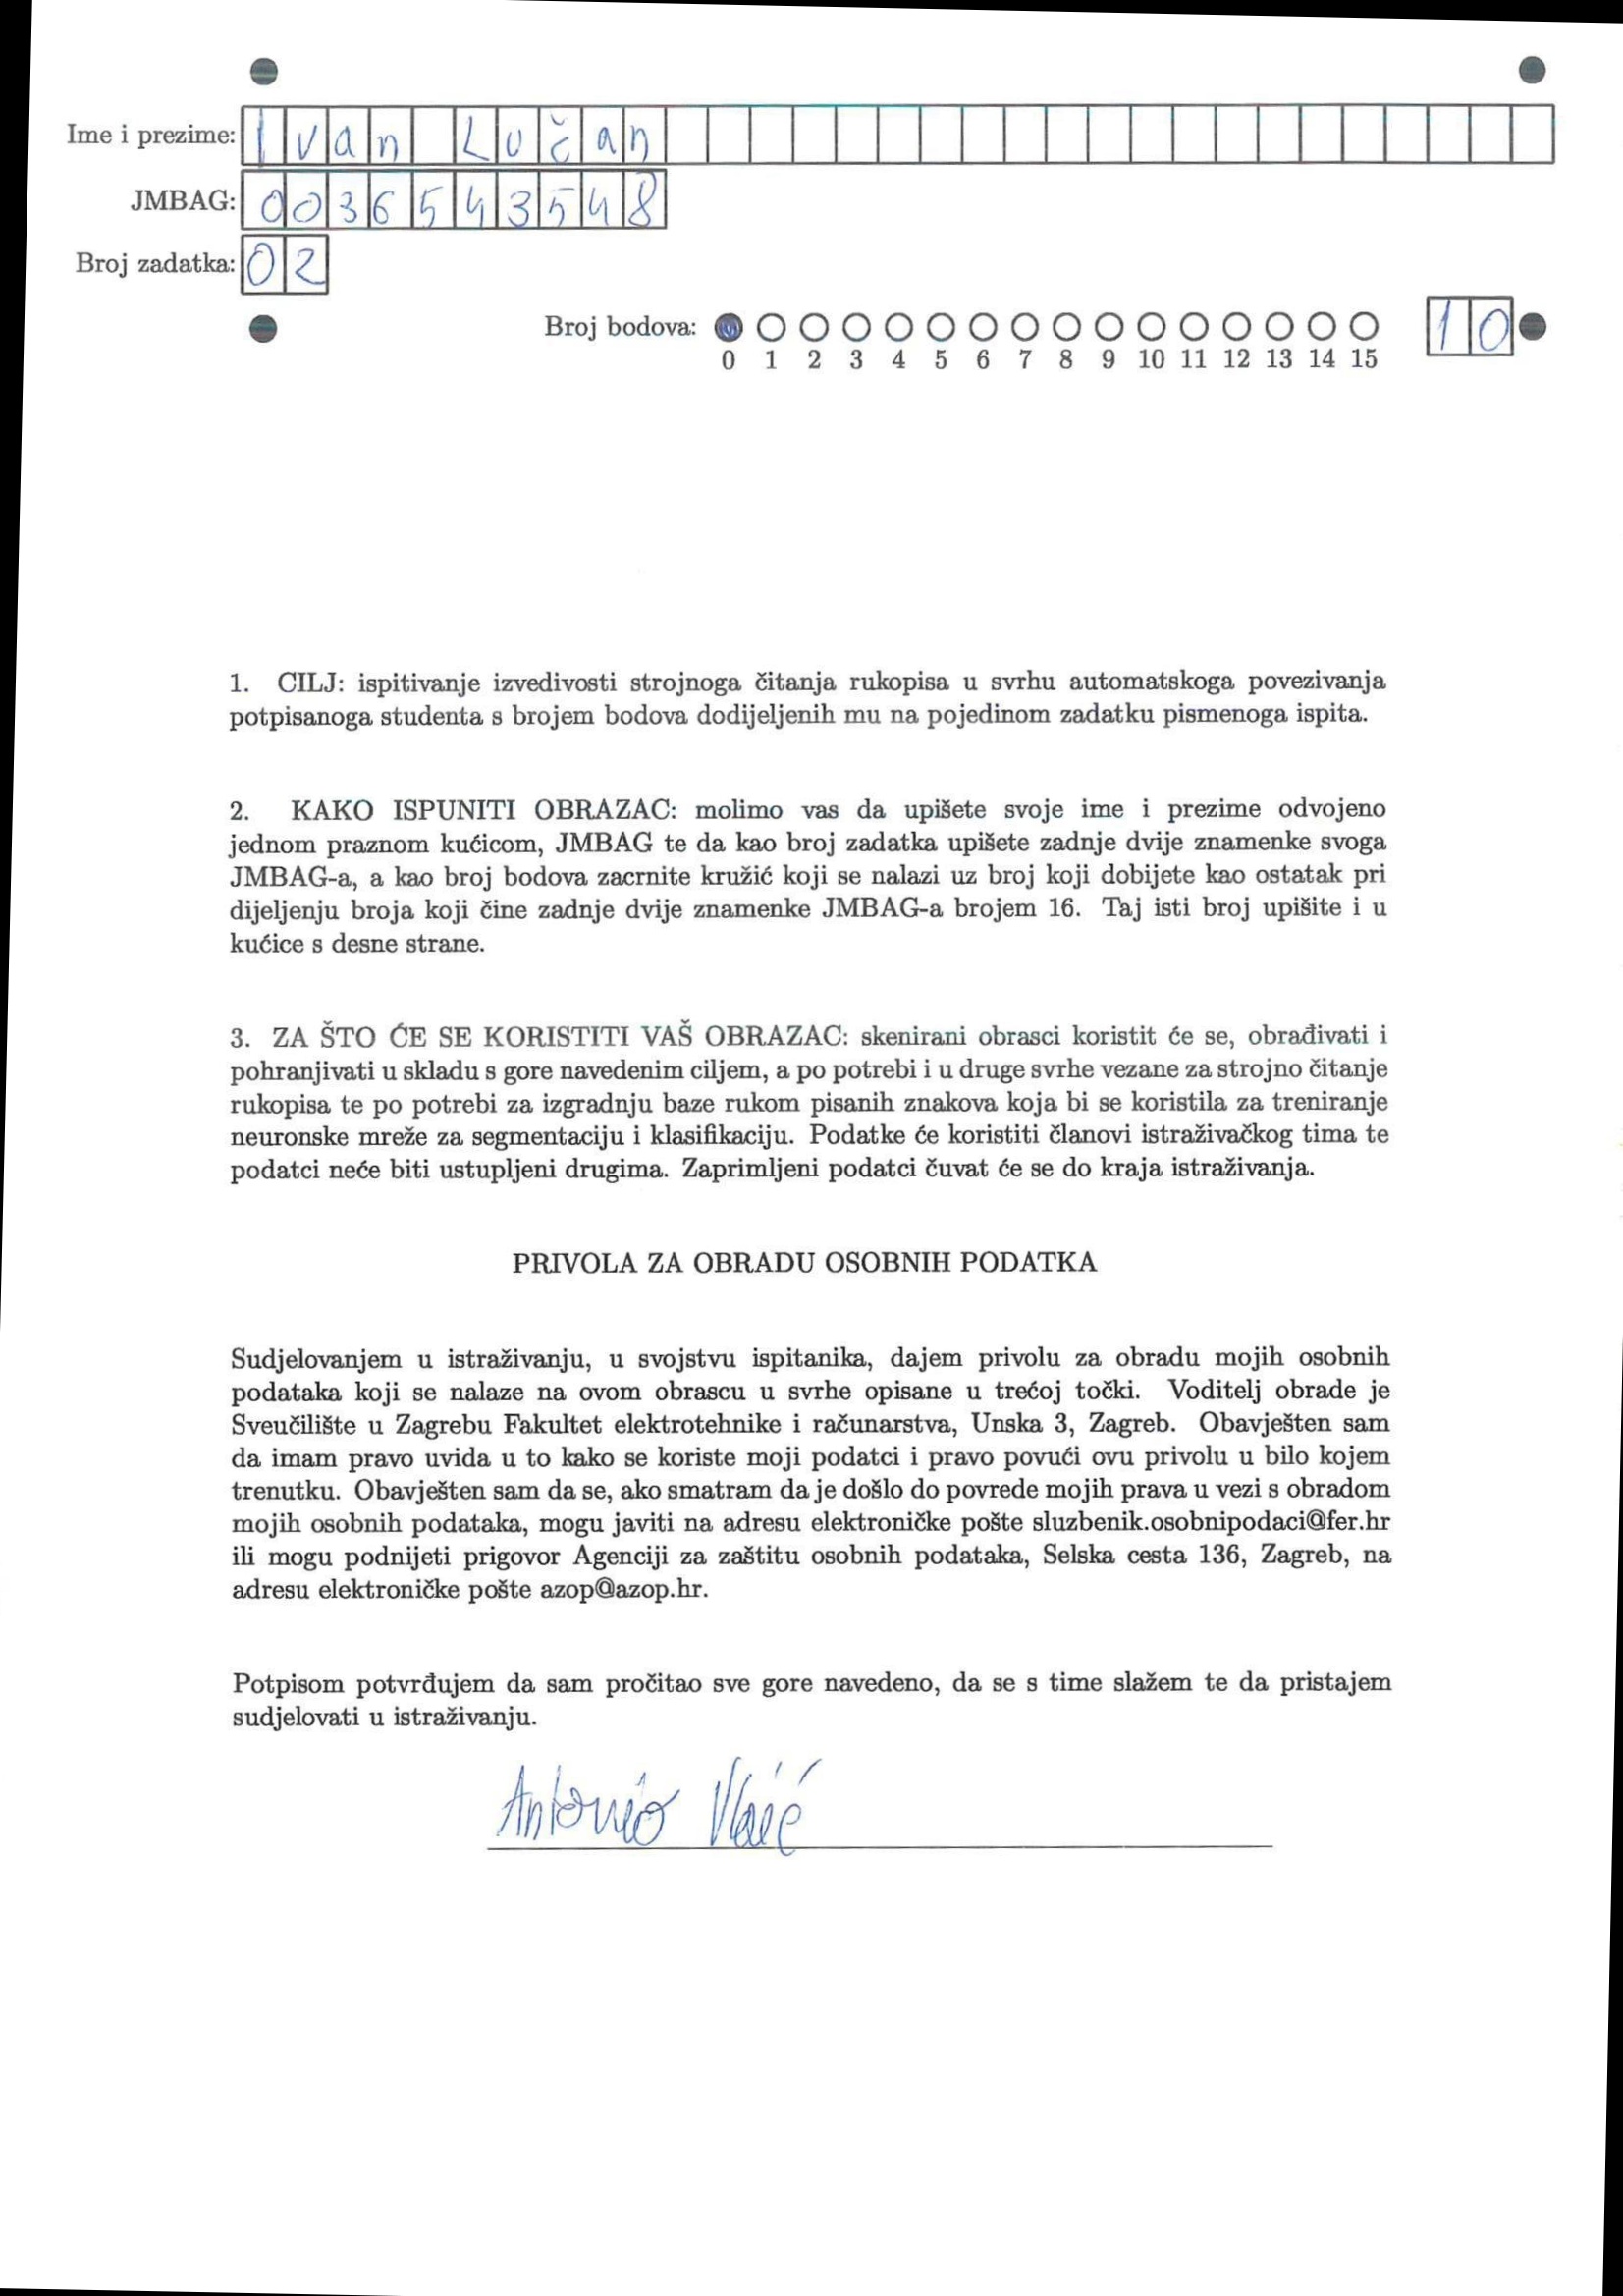 Ime i prezime: Ivan Lučan
JMBAG: 0036543548
Broj zadatka: 02
Broj bodova: 10
0 1 2 3 4 5 6 7 8 9 10 11 12 13 14 15
1. CILJ: ispitivanje izvedivosti strojnoga čitanja rukopisa u svrhu automatskoga povezivanja
potpisanoga studenta s brojem bodova dodijeljenih mu na pojedinom zadatku pismenoga ispita.
2. KAKO ISPUNITI OBRAZAC: molimo vas da upišete svoje ime i prezime odvojeno
jednom praznom kućicom, JMBAG te da kao broj zadatka upišete zadnje dvije znamenke svoga
JMBAG-a, a kao broj bodova zacrnite kružić koji se nalazi uz broj koji dobijete kao ostatak pri
dijeljenju broja koji čine zadnje dvije znamenke JMBAG-a brojem 16. Taj isti broj upišite i u
kućice s desne strane.
3. ZA ŠTO ĆE SE KORISTITI VAŠ OBRAZAC: skenirani obrasci koristit će se, obrađivati i
pohranjivati u skladu s gore navedenim ciljem, a po potrebi i u druge svrhe vezane za strojno čitanje
rukopisa te po potrebi za izgradnju baze rukom pisanih znakova koja bi se koristila za treniranje
neuronske mreže za segmentaciju i klasifikaciju. Podatke će koristiti članovi istraživačkog tima te
podatci neće biti ustupljeni drugima. Zaprimljeni podatci čuvat će se do kraja istraživanja.
PRIVOLA ZA OBRADU OSOBNIH PODATKA
Sudjelovanjem u istraživanju, u svojstvu ispitanika, dajem privolu za obradu mojih osobnih
podataka koji se nalaze na ovom obrascu u svrhe opisane u trećoj točki. Voditelj obrade je
Sveučilište u Zagrebu Fakultet elektrotehnike i računarstva, Unska 3, Zagreb. Obavješten sam
da imam pravo uvida u to kako se koriste moji podatci i pravo povući ovu privolu u bilo kojem
trenutku. Obavješten sam da se, ako smatram da je došlo do povrede mojih prava u vezi s obradom
mojih osobnih podataka, mogu javiti na adresu elektroničke pošte sluzbenik.osobnipodaci@fer.hr
ili mogu podnijeti prigovor Agenciji za zaštitu osobnih podataka, Selska cesta 136, Zagreb, na
adresu elektroničke pošte azop@azop.hr.
Potpisom potvrđujem da sam pročitao sve gore navedeno, da se s time slažem te da pristajem
sudjelovati u istraživanju.
Antonio